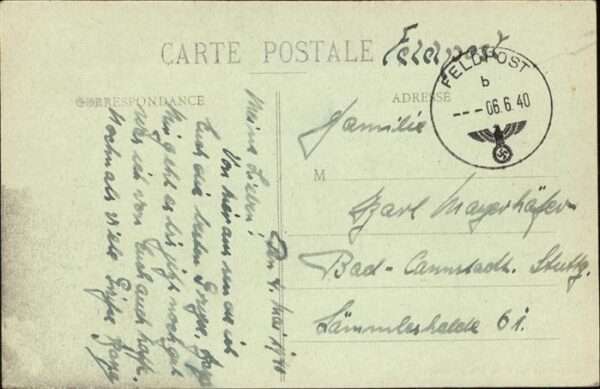 CARTE POSTALE
Feldpost
FELDPOST
b
--- 06.6.40
CORRESPONDANCE
ADRESSE
Familie
M
Karl Mayerhöfer
Bad-Cannstadt. Stuttg.
Lämmleshalde 61.
Den 4. Mai 1940
Meine Lieben!
Von hier aus sende ich
Euch die besten Grüße,
Mir geht es bis jetzt noch gut
was ich von Euch auch hoffe.
Nochmals viele Grüße